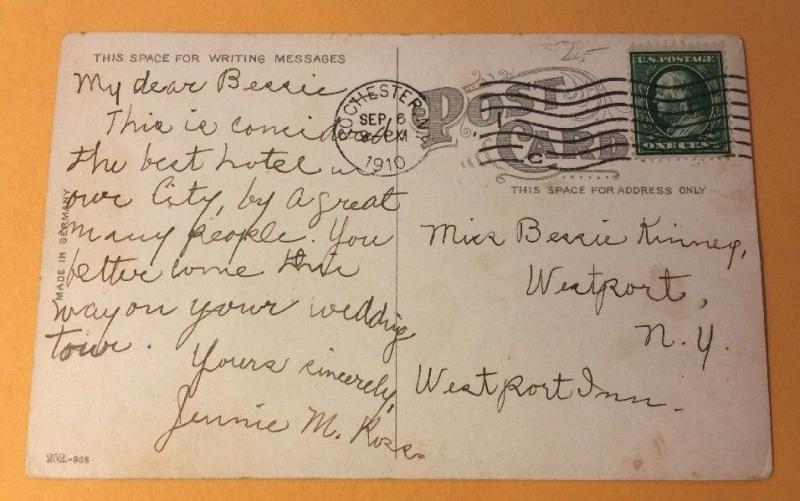 THIS SPACE FOR WRITING MESSAGES
My dear Bessie
This is considered
the best hotel in
our City, by a great
many people. You
better come this
way on your wedding
tour.
Yours sincerely,
Jennie M. Ross.
MADE IN GERMANY
252.-988
ROCHESTER, N.Y.
SEP 6
PM
1910
POST
CARD
THIS SPACE FOR ADDRESS ONLY
U.S. POSTAGE
ONE CENT
Miss Bessie Kinney,
Westport,
N.Y.
Westport Inn.